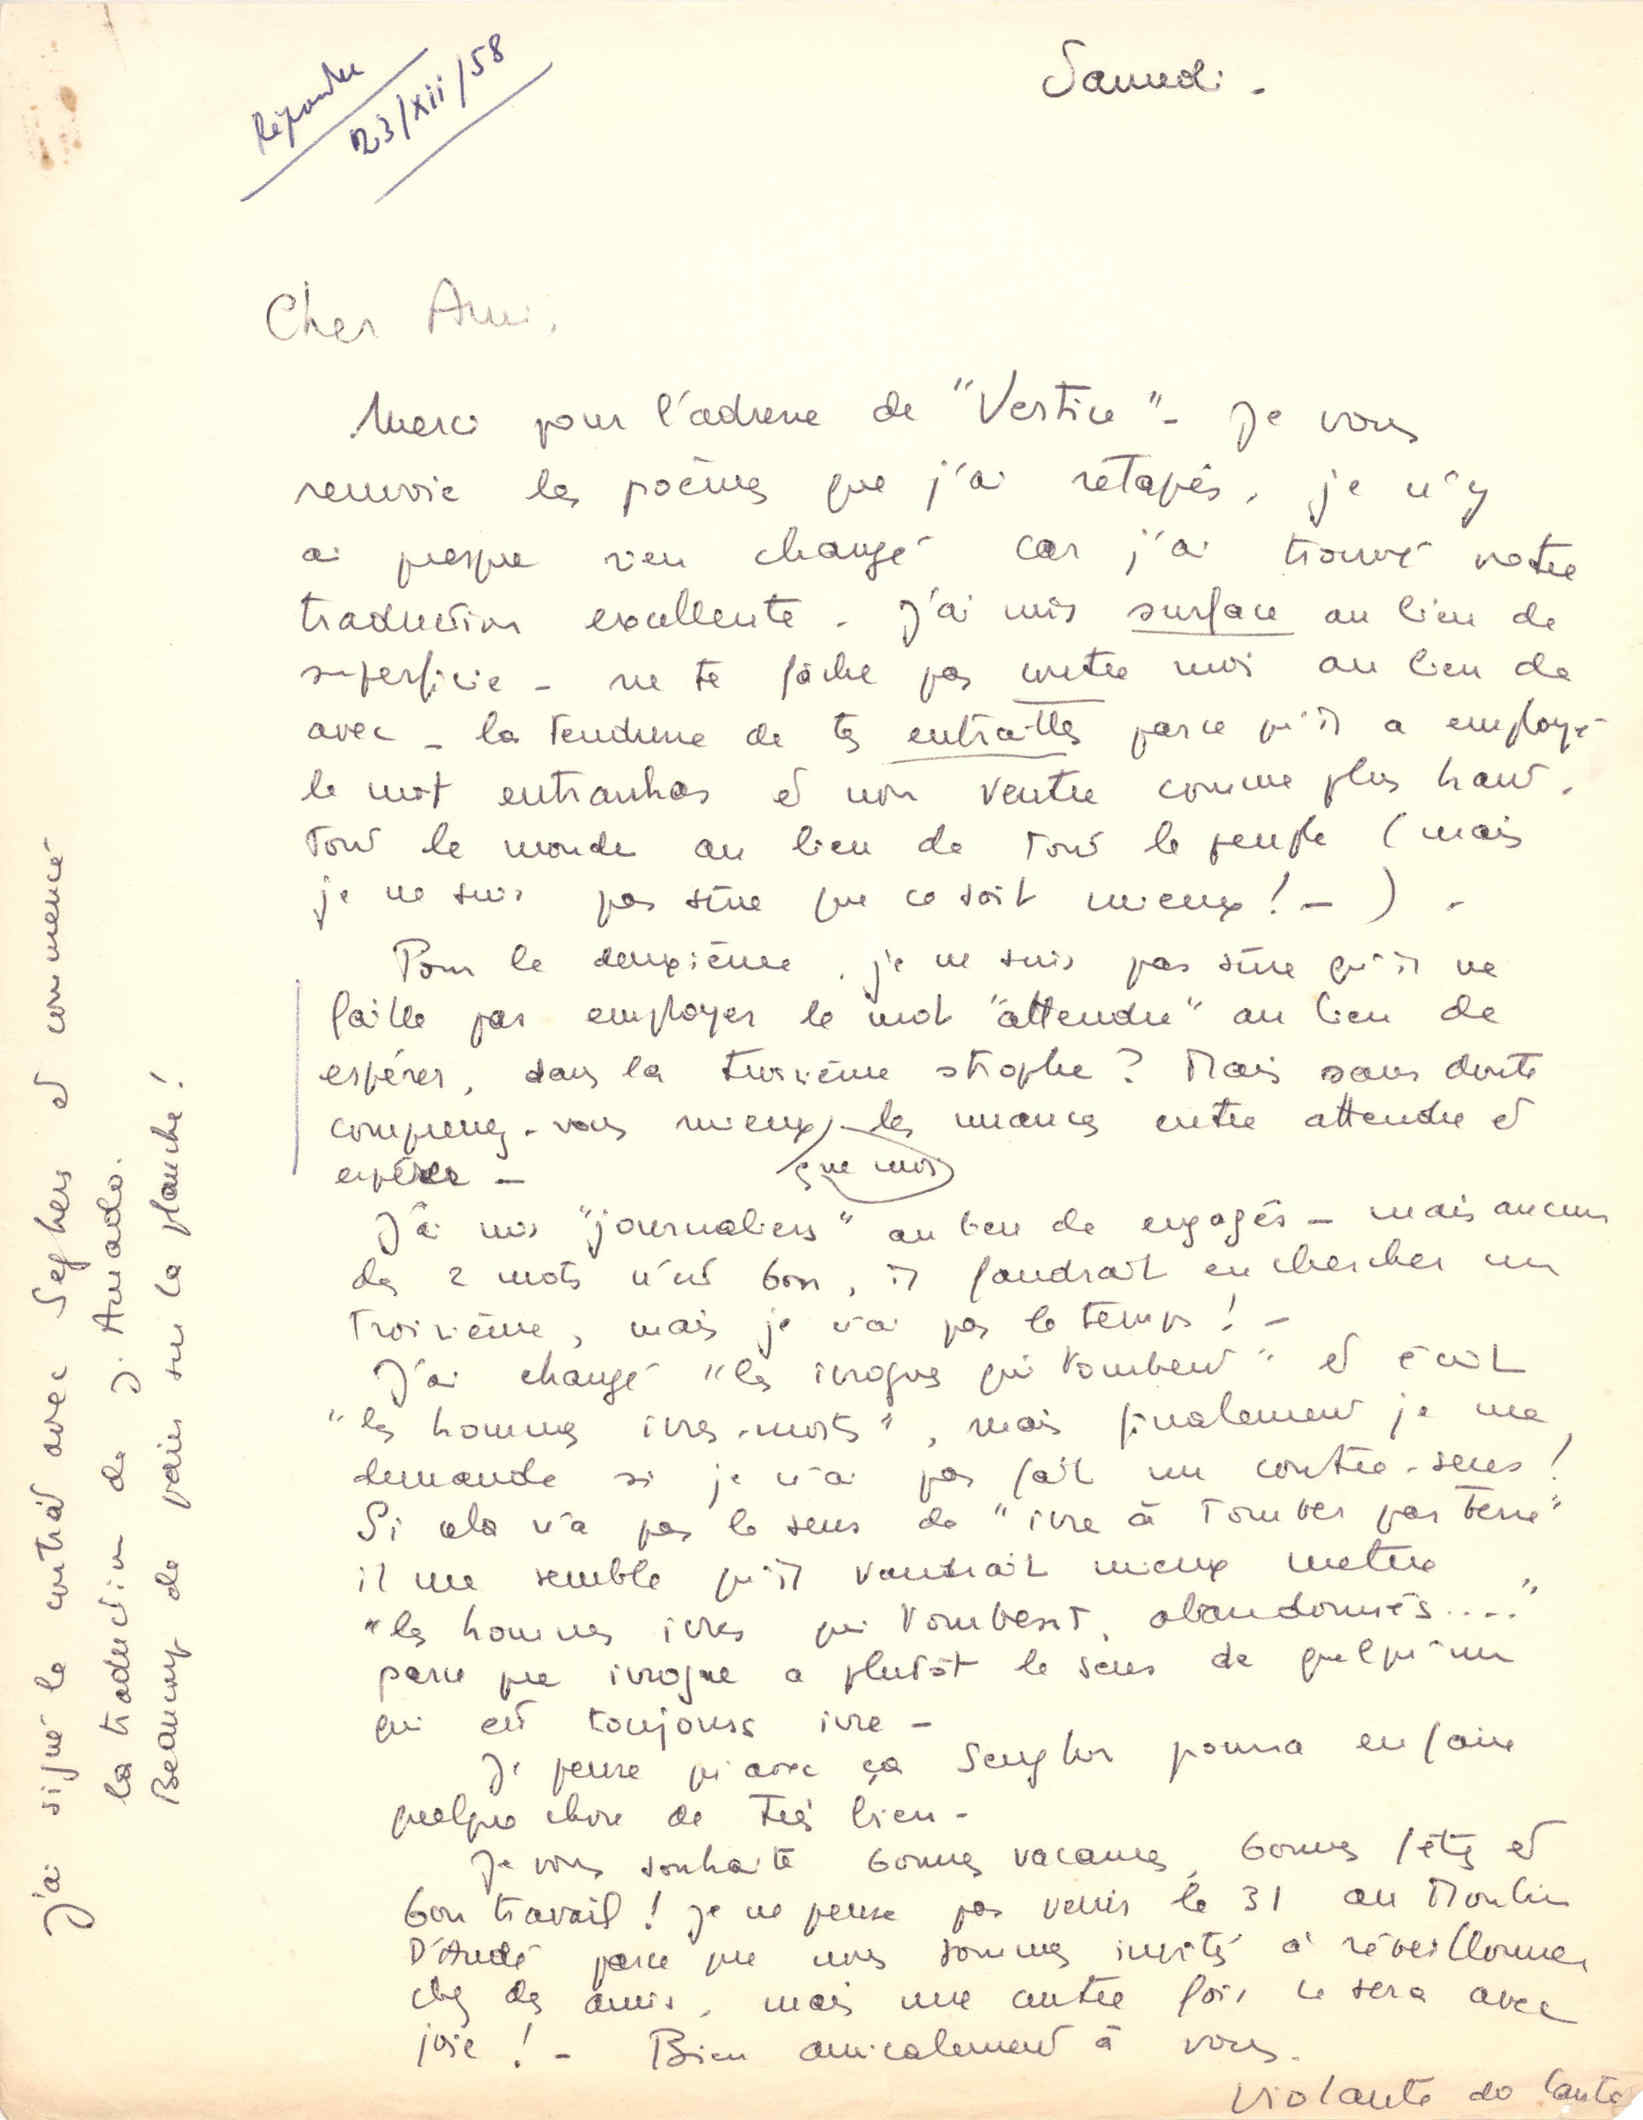 Répondu
23/XII/58
Samedi -
Cher Ami,
Merci pour l'adresse de "Vertice" - Je vous
renvoie les poèmes que j'ai retapés, je n'y
ai presque rien changé car j'ai trouvé votre
traduction excellente. J'ai mis surface au lieu de
superficie - ne te fâche pas contre moi au lieu de
avec - la tendresse de tes entrailles parce qu'il a employé
le mot entranhas et non ventre comme plus haut.
Tout le monde au lieu de tout le peuple (mais
je ne suis pas sûre que ce soit mieux! -) -
Pour le deuxième, je ne suis pas sûre qu'il ne
faille pas employer le mot "attendre" au lieu de
espérer, dans la troisième strophe? Mais sans doute
comprenez-vous mieux que moi les nuances entre attendre et
espérer -
J'ai mis "journaliers" au lieu de engagés - mais aucun
des 2 mots n'est bon, il faudrait en chercher un
troisième, mais je n'ai pas le temps! -
J'ai changé "les ivrognes qui tombent" et écrit
"les hommes ivres-morts", mais finalement je me
demande si je n'ai pas fait un contre-sens!
Si cela n'a pas le sens de "ivre à tomber par terre"
il me semble qu'il vaudrait mieux mettre
"les hommes ivres qui tombent, abandonnés...."
parce que ivrogne a plutôt le sens de quelqu'un
qui est toujours ivre -
Je pense qu'avec ça Senghor pourra en faire
quelque chose de très bien -
Je vous souhaite bonnes vacances, bonnes fêtes et
bon travail! Je ne pense pas venir le 31 au Moulin
D'Andé parce que nous sommes invités à réveillonner
chez des amis, mais une autre fois ce sera avec
joie! - Bien amicalement à vous.
Violante do Canto
J'ai signé le contrat avec Seghers et commencé
la traduction de J. Amado.
Beaucoup de pain sur la planche!